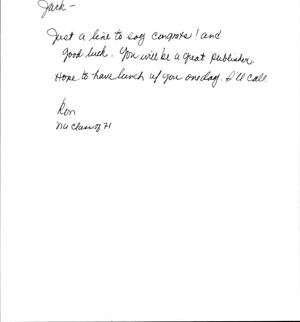 Jack -
Just a line to say congrats! and
good luck. You will be a great publisher.
Hope to have lunch w/ you one day. I'll call
Ron
NU Class of 71